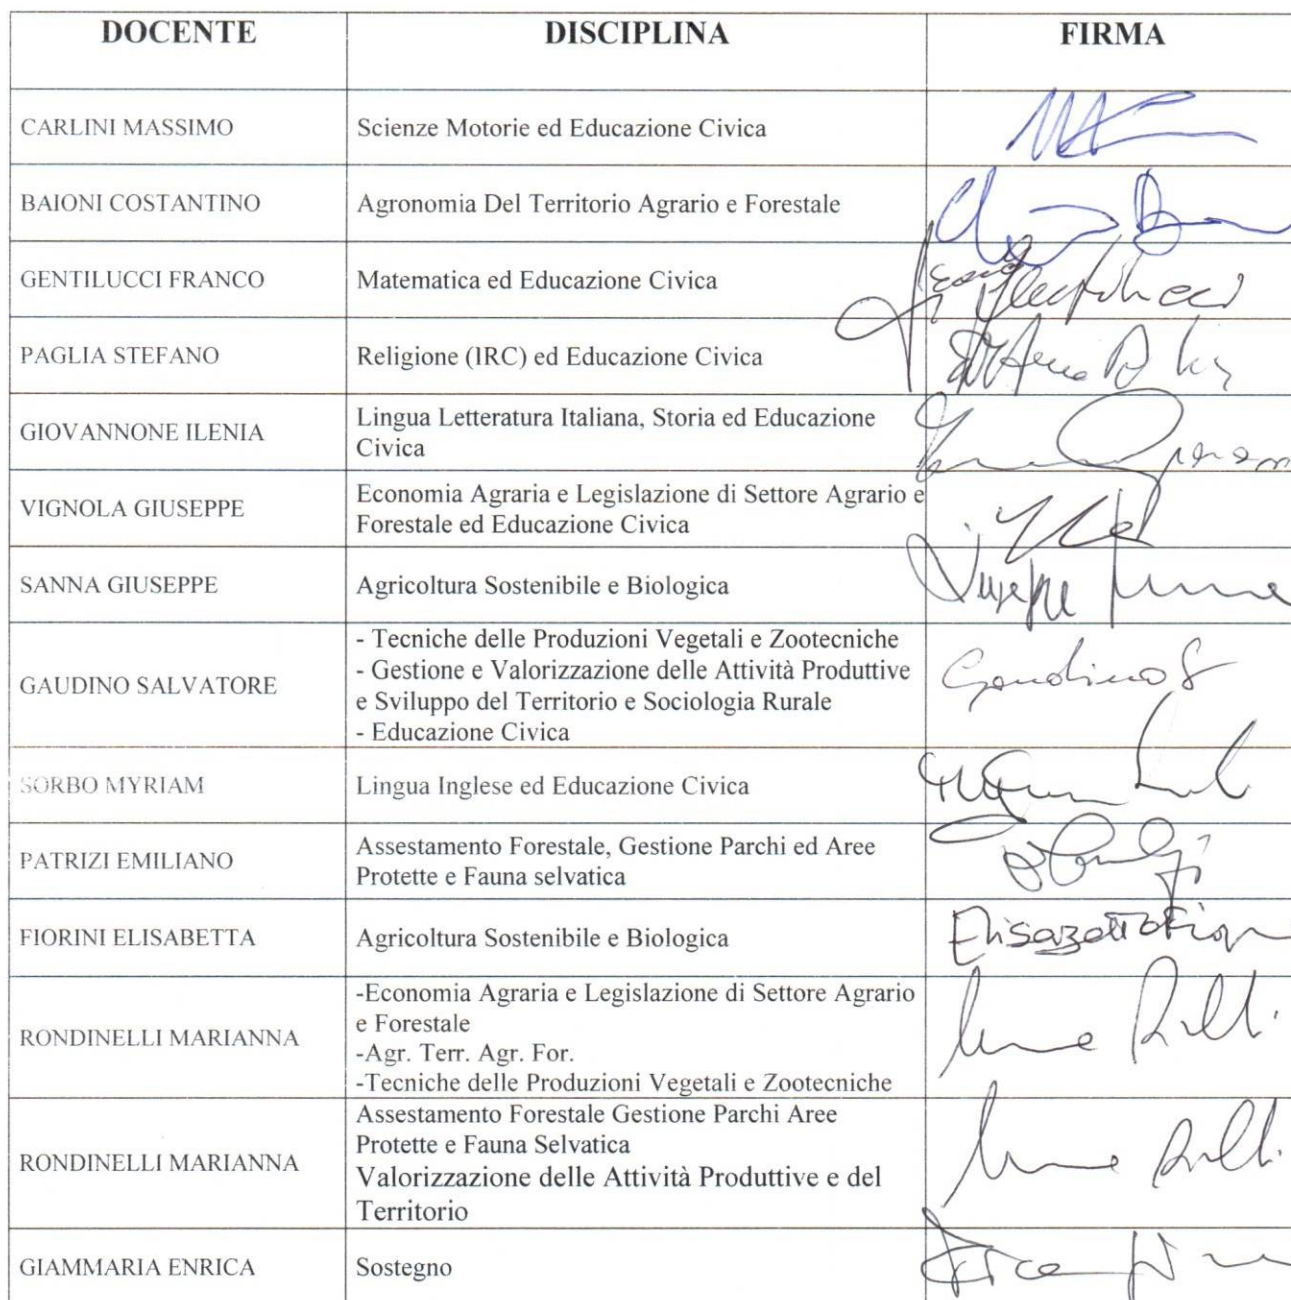 DOCENTE DISCIPLINA FIRMA
CARLINI MASSIMO Scienze Motorie ed Educazione Civica
BAIONI COSTANTINO Agronomia Del Territorio Agrario e Forestale
GENTILUCCI FRANCO Matematica ed Educazione Civica
PAGLIA STEFANO Religione (IRC) ed Educazione Civica
GIOVANNONE ILENIA Lingua Letteratura Italiana, Storia ed Educazione
Civica
VIGNOLA GIUSEPPE Economia Agraria e Legislazione di Settore Agrario e
Forestale ed Educazione Civica
SANNA GIUSEPPE Agricoltura Sostenibile e Biologica Giuseppe
GAUDINO SALVATORE - Tecniche delle Produzioni Vegetali e Zootecniche
- Gestione e Valorizzazione delle Attività Produttive
e Sviluppo del Territorio e Sociologia Rurale
- Educazione Civica
Gaudino S
SORBO MYRIAM Lingua Inglese ed Educazione Civica
PATRIZI EMILIANO Assestamento Forestale, Gestione Parchi ed Aree
Protette e Fauna selvatica
FIORINI ELISABETTA Agricoltura Sostenibile e Biologica
RONDINELLI MARIANNA -Economia Agraria e Legislazione di Settore Agrario
e Forestale
-Agr. Terr. Agr. For.
-Tecniche delle Produzioni Vegetali e Zootecniche
RONDINELLI MARIANNA Assestamento Forestale Gestione Parchi Aree
Protette e Fauna Selvatica
Valorizzazione delle Attività Produttive e del
Territorio
GIAMMARIA ENRICA Sostegno